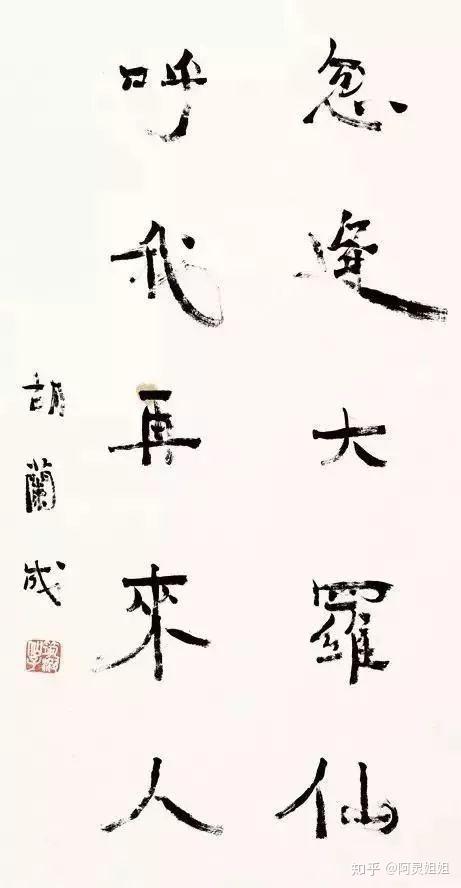 忽逢大羅仙
呼我再來人
胡蘭成
知乎 @阿灵姐姐